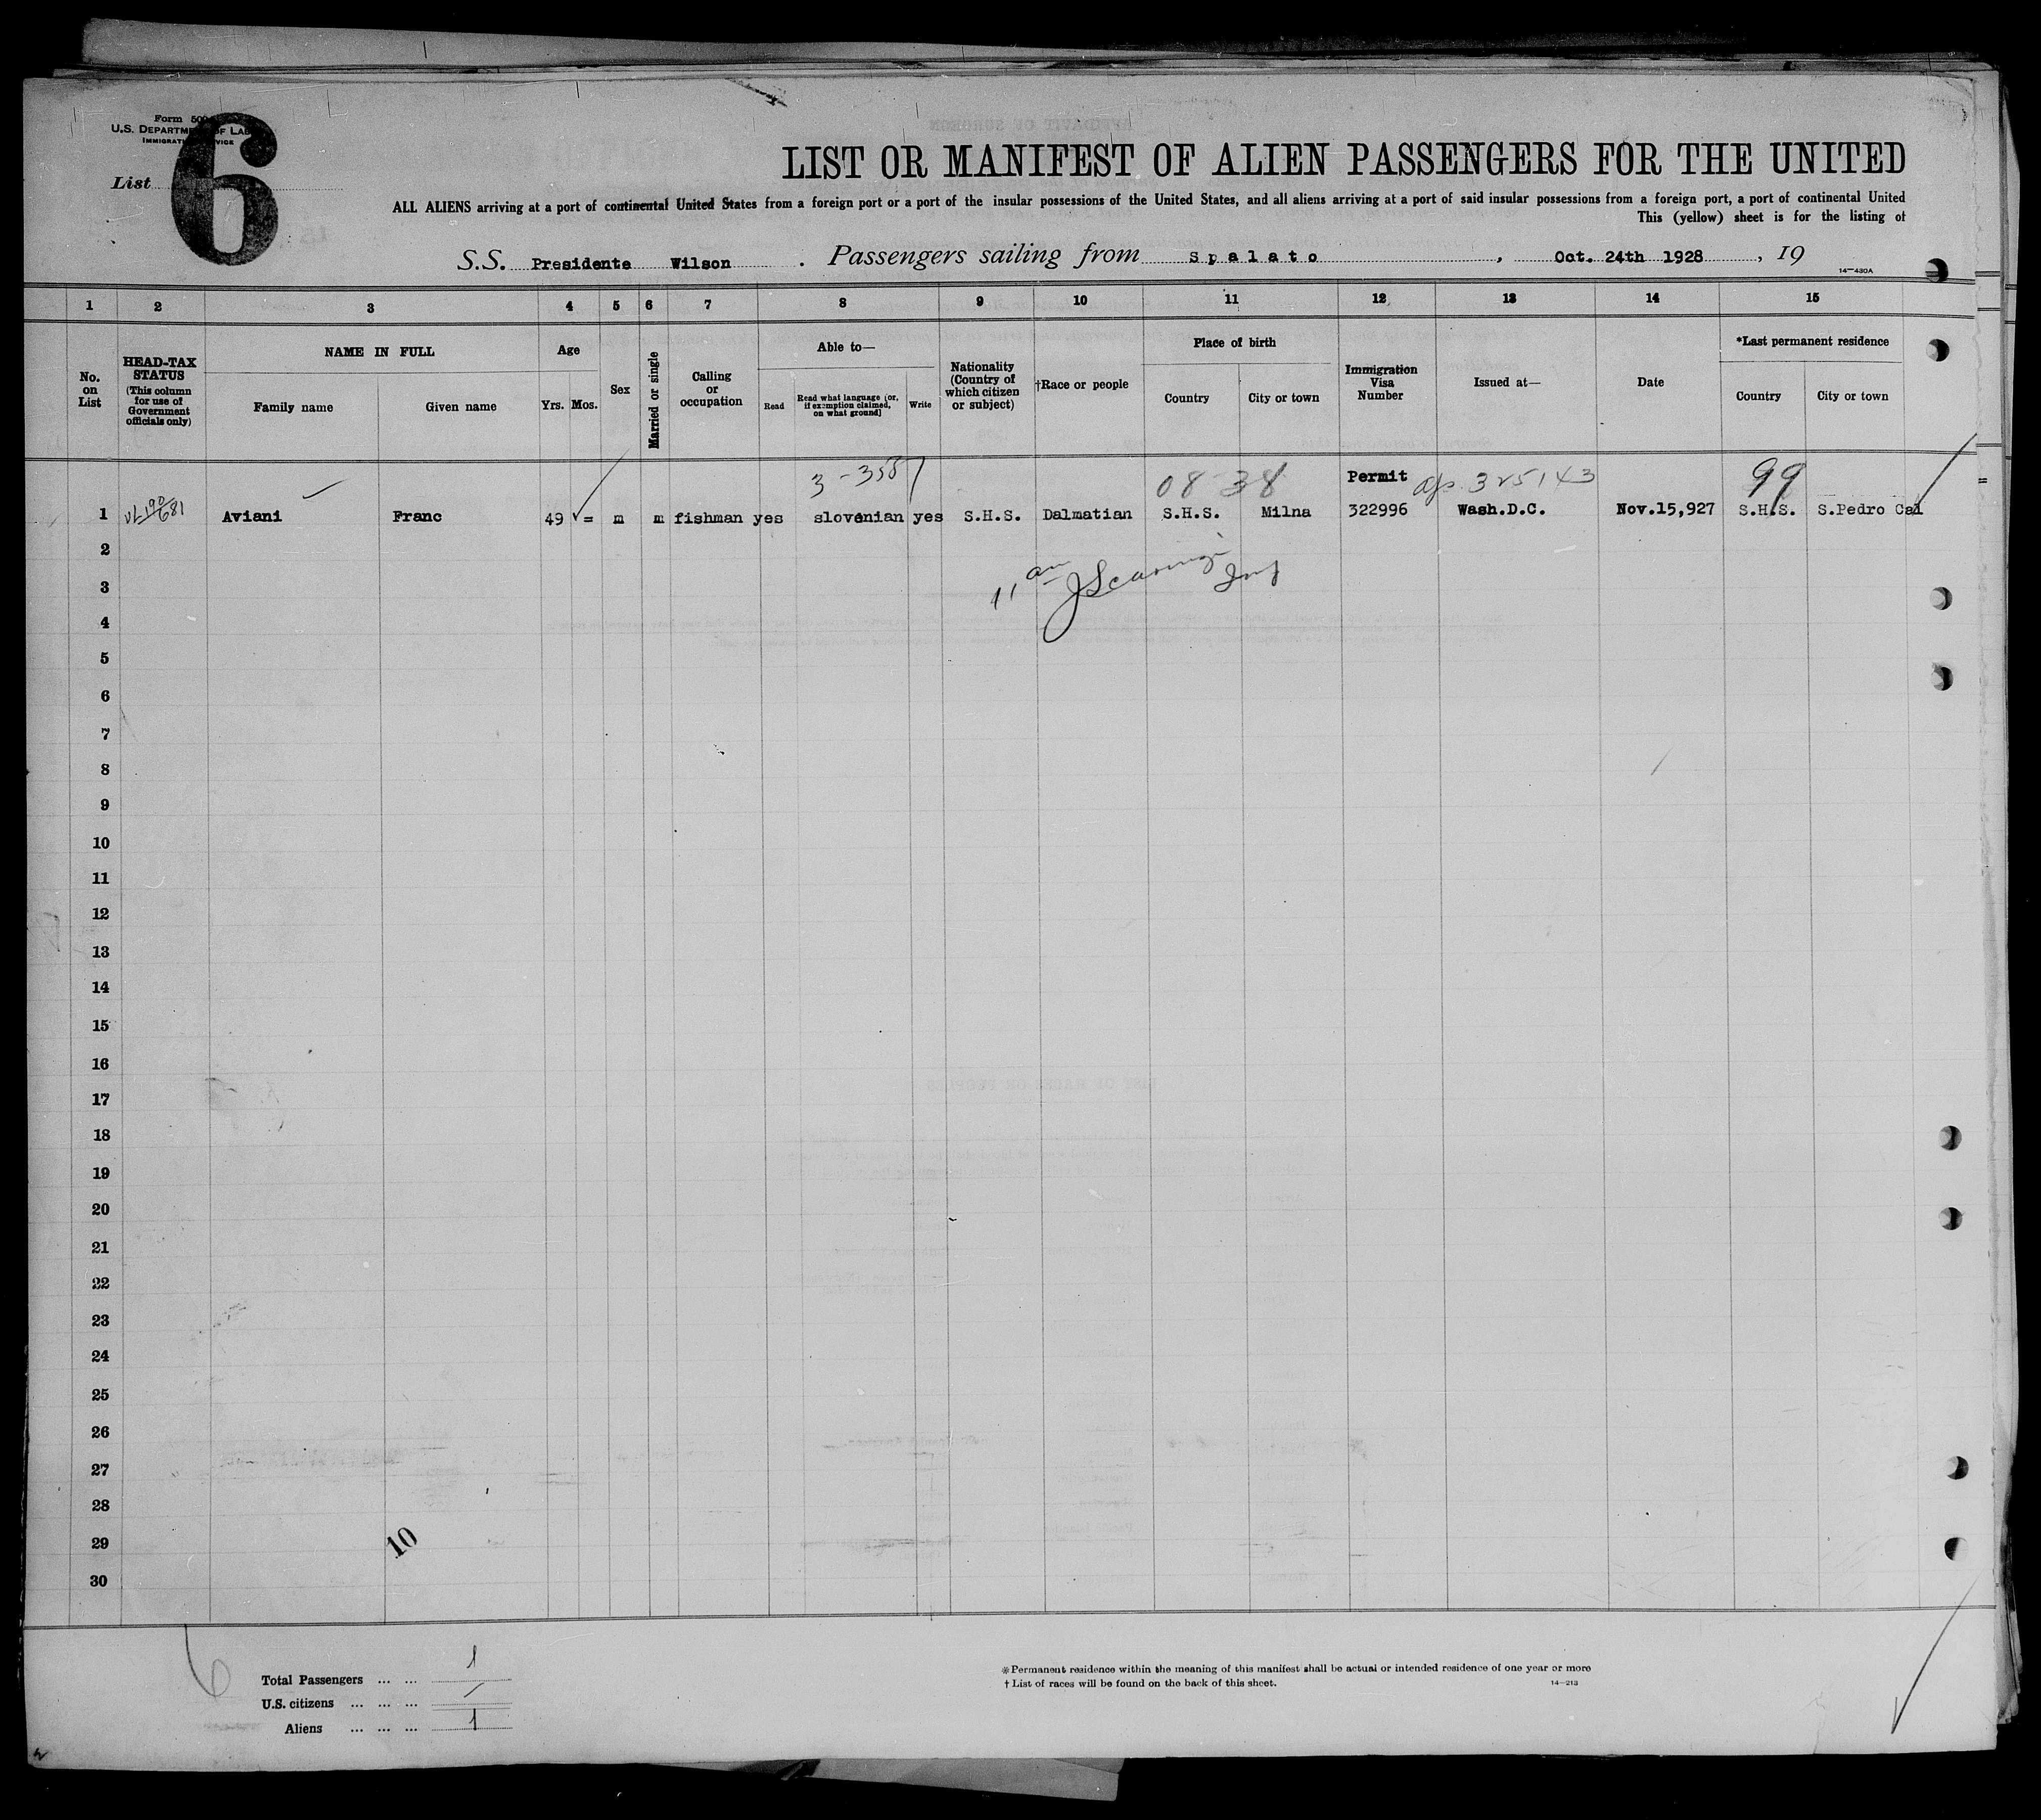 Form 500
U.S. DEPARTMENT OF LAB
IMMIGRAT VICE
List
6
LIST OR MANIFEST OF ALIEN PASSENGERS FOR THE UNITED
ALL ALIENS arriving at a port of continental United States from a foreign port or a port of the insular possessions of the United States, and all aliens arriving at a port of said insular possessions from a foreign port, a port of continental United
This (yellow) sheet is for the listing of
S.S. Presidente Wilson . Passengers sailing from Spalato , Oct. 24th 1928 , 19
14—430A
1 2 3 4 5 6 7 8 9 10 11 12 13 14 15
No. on List
HEAD-TAX STATUS (This column for use of Government officials only)
NAME IN FULL
Family name Given name
Age
Yrs. Mos.
Sex
Married or single
Calling or occupation
Able to—
Read
Read what language (or, if exemption claimed, on what ground)
Write
Nationality (Country of which citizen or subject)
†Race or people
Place of birth
Country City or town
Immigration Visa Number
Issued at—
Date
*Last permanent residence
Country City or town
08-38 Permit 325143 99
1 Aviani Franc 49 = m m fishman yes slovenian yes S.H.S. Dalmatian S.H.S. Milna 322996 Wash.D.C. Nov.15,927 S.H.S. S.Pedro Cal
2
11 am
3
4
5
6
7
8
9
10
11
12
13
14
15
16
17
18
19
20
21
22
23
24
25
26
27
28
29
10
30
6
Total Passengers ... ... 1
U.S. citizens ... ... ... /
Aliens ... ... ... 1
*Permanent residence within the meaning of this manifest shall be actual or intended residence of one year or more
†List of races will be found on the back of this sheet.
14—213